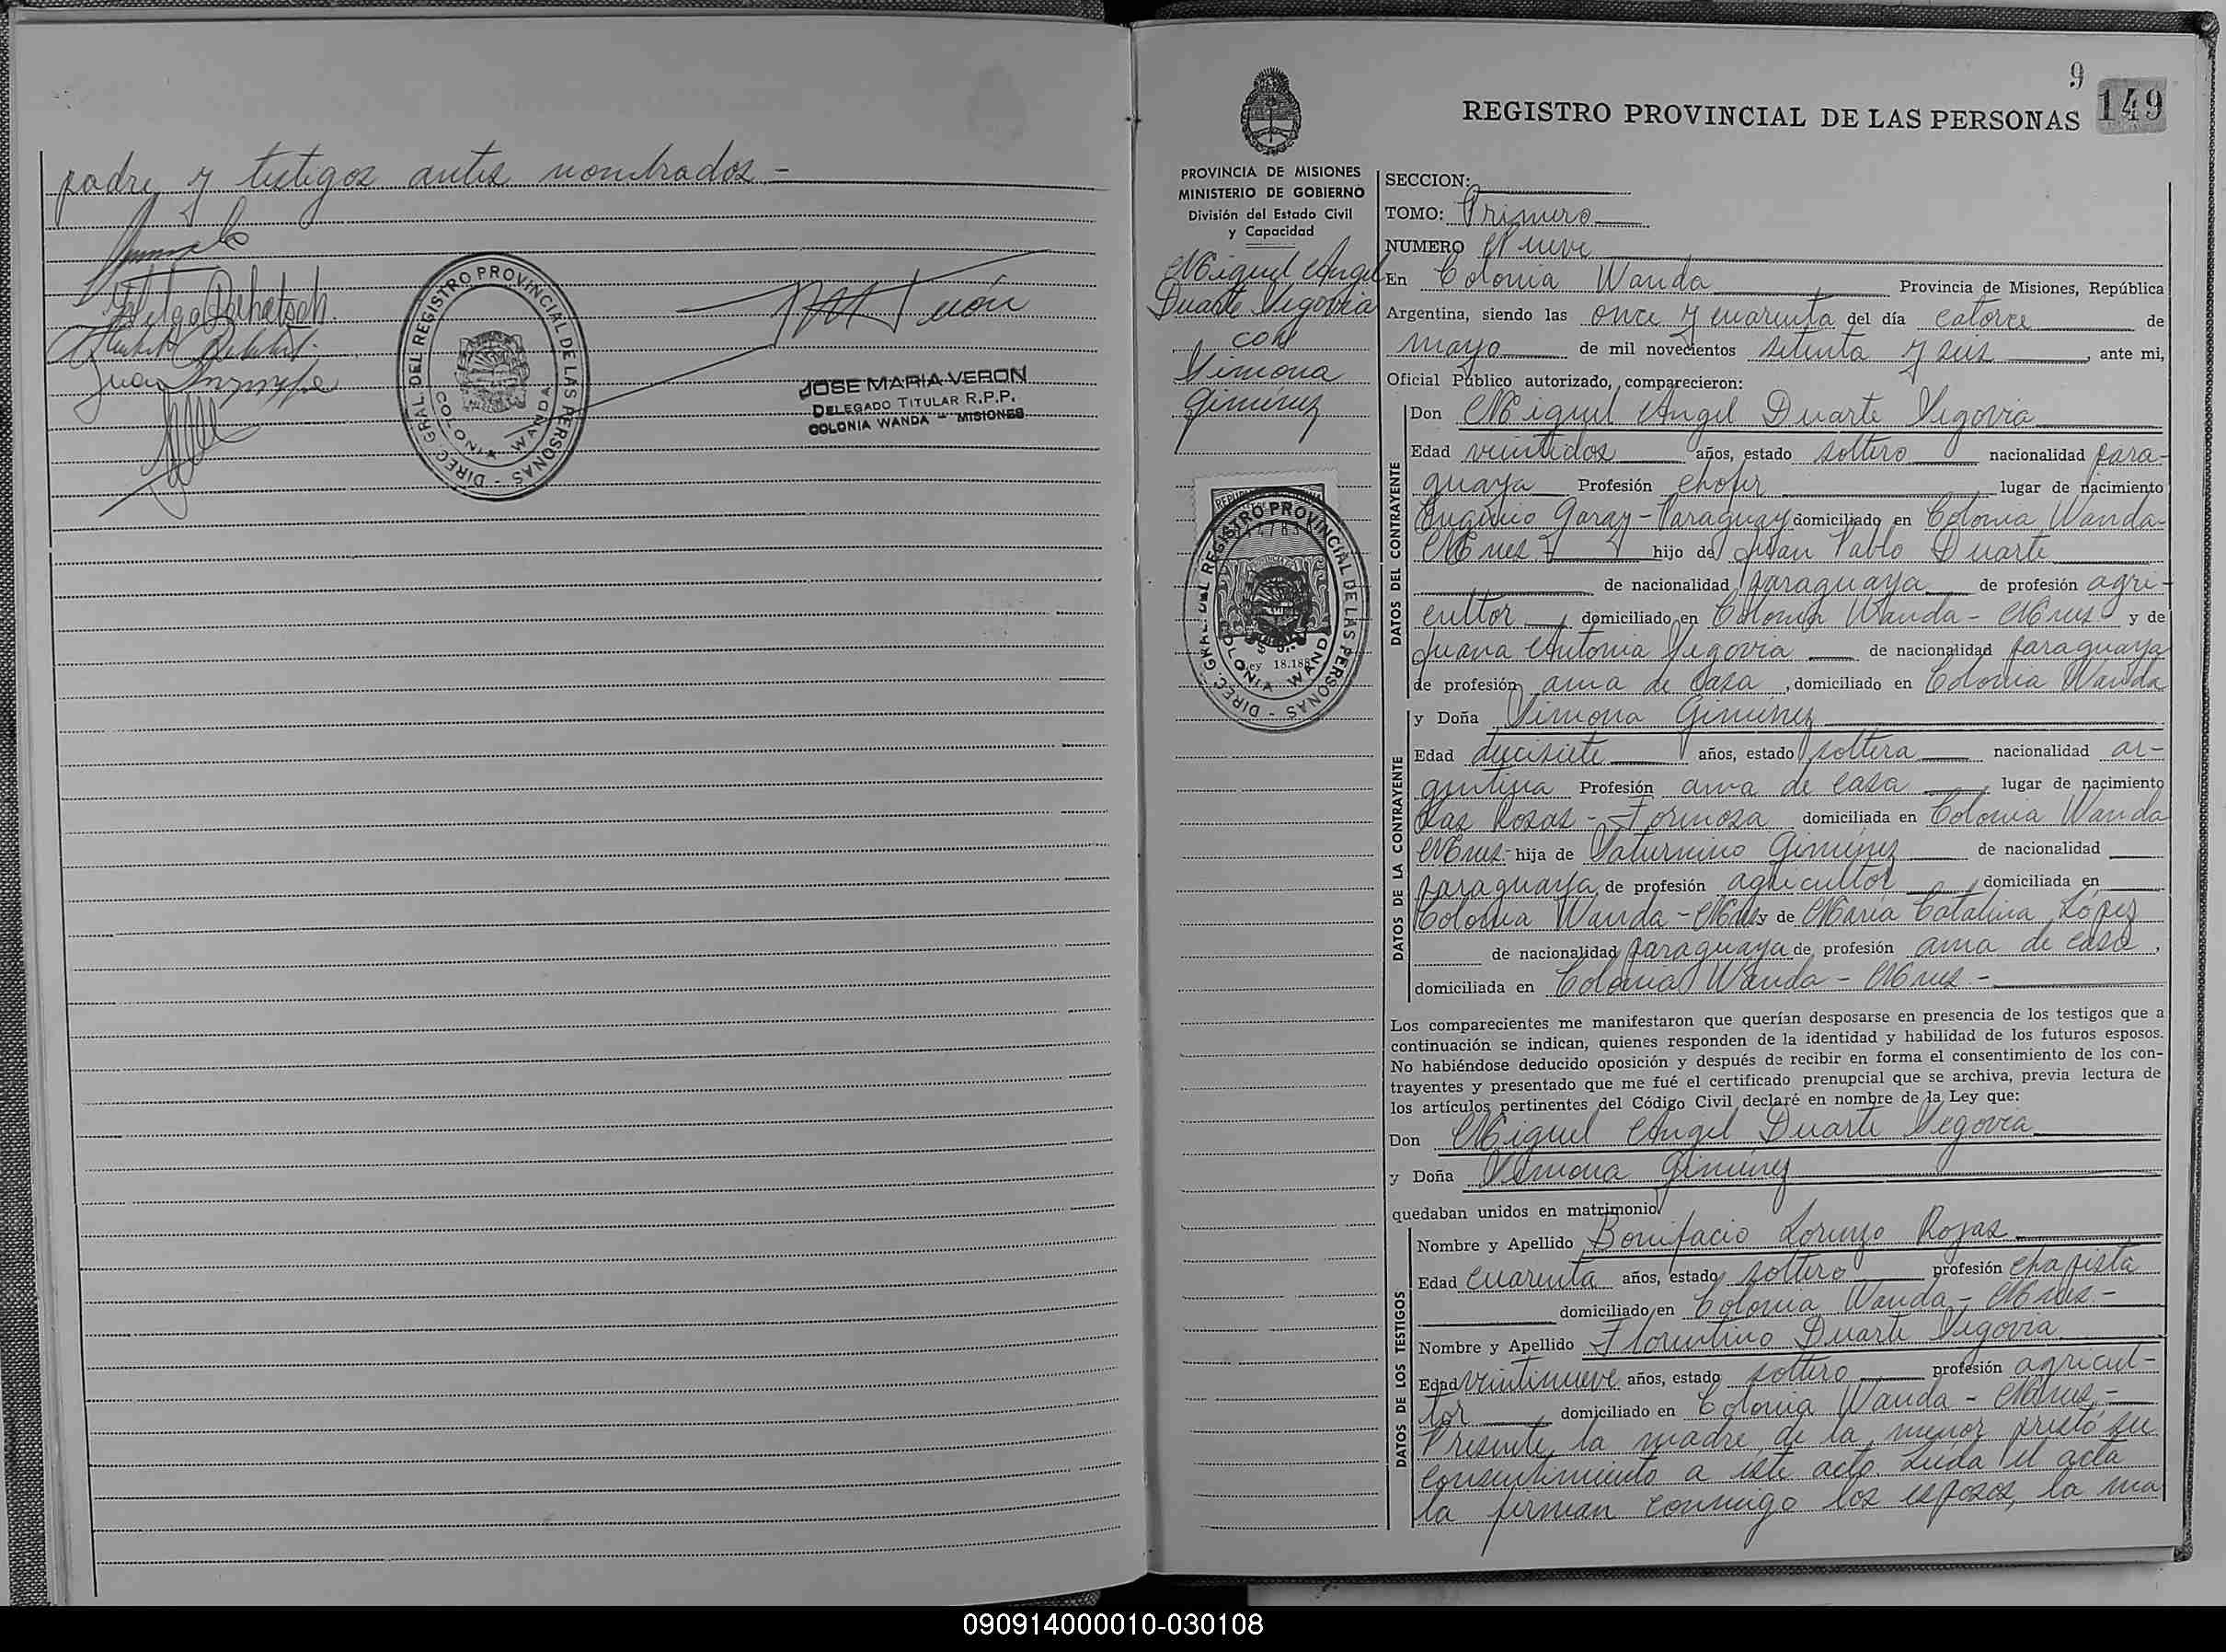 padre y testigos antes nombrados -
DIREC. GRAL. DEL REGISTRO PROVINCIAL DE LAS PERSONAS -
COLONIA WANDA
JOSE MARIA VERON
DELEGADO TITULAR R.P.P.
COLONIA WANDA - MISIONES
9
149
REGISTRO PROVINCIAL DE LAS PERSONAS
PROVINCIA DE MISIONES
MINISTERIO DE GOBIERNO
División del Estado Civil
y Capacidad
Miguel Angel
Duarte Segovia
con
Simona
Giménez
DIREC. GRAL. DEL REGISTRO PROVINCIAL DE LAS PERSONAS -
COLONIA WANDA
Ley 18.188
SECCION:
TOMO: Primero
NUMERO Nueve
En Colonia Wanda Provincia de Misiones, República
Argentina, siendo las once y cuarenta del día catorce de
mayo de mil novecientos setenta y seis, ante mi,
Oficial Público autorizado, comparecieron:
DATOS DEL CONTRAYENTE
Don Miguel Angel Duarte Segovia
Edad veintidos años, estado soltero nacionalidad para-
guaya Profesión chofer lugar de nacimiento
Eugenio Garay - Paraguay domiciliado en Colonia Wanda-
Mnes. hijo de Juan Pablo Duarte
de nacionalidad paraguaya de profesión agri-
cultor, domiciliado en Colonia Wanda - Mnes y de
Juana Antonia Segovia de nacionalidad paraguaya
de profesión ama de casa, domiciliado en Colonia Wanda
DATOS DE LA CONTRAYENTE
y Doña Simona Giménez
Edad diecisiete años, estado soltera nacionalidad ar-
gentina Profesión ama de casa, lugar de nacimiento
Las Rosas - Formosa domiciliada en Colonia Wanda
Mnes- hija de Saturnino Giménez de nacionalidad
paraguaya, de profesión agricultor, domiciliada en
Colonia Wanda - Mnes y de María Catalina López
de nacionalidad paraguaya de profesión ama de casa,
domiciliada en Colonia Wanda - Mnes -
Los comparecientes me manifestaron que querían desposarse en presencia de los testigos que a
continuación se indican, quienes responden de la identidad y habilidad de los futuros esposos.
No habiéndose deducido oposición y después de recibir en forma el consentimiento de los con-
trayentes y presentado que me fué el certificado prenupcial que se archiva, previa lectura de
los artículos pertinentes del Código Civil declaré en nombre de la Ley que:
Don Miguel Angel Duarte Segovia
y Doña Simona Giménez
quedaban unidos en matrimonio
DATOS DE LOS TESTIGOS
Nombre y Apellido Bonifacio Lorenzo Rojas
Edad cuarenta años, estado soltero profesión chapista
domiciliado en Colonia Wanda - Mnes -
Nombre y Apellido Florentino Duarte Segovia
Edad veintinueve años, estado soltero profesión agricul-
tor domiciliado en Colonia Wanda - Mnes -
Presente la madre de la menor prestó su
consentimiento a este acto. Leída el acta
la firman conmigo los esposos, la ma
090914000010-030108